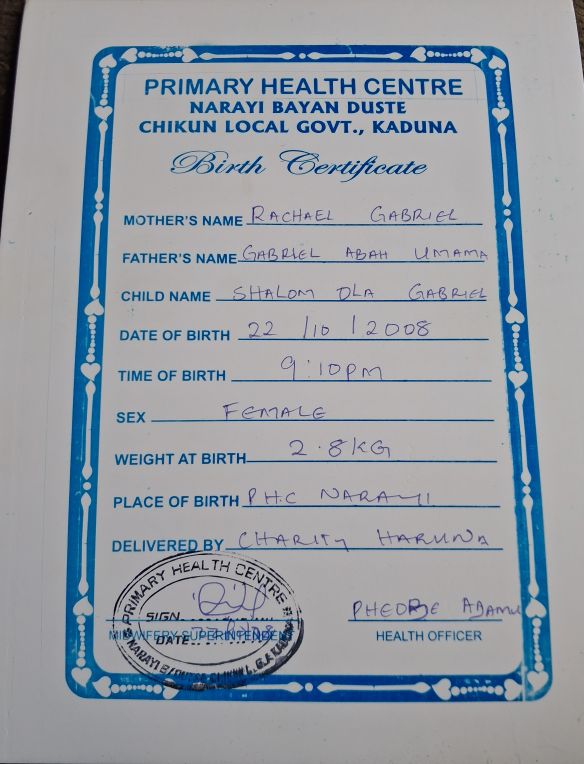 PRIMARY HEALTH CENTRE
NARAYI BAYAN DUSTE
CHIKUN LOCAL GOVT., KADUNA
Birth Certificate
MOTHER'S NAME RACHAEL GABRIEL
FATHER'S NAME GABRIEL ABAH UMAMA
CHILD NAME SHALOM OLA GABRIEL
DATE OF BIRTH 22/10/2008
TIME OF BIRTH 9:10PM
SEX FEMALE
WEIGHT AT BIRTH 2.8KG
PLACE OF BIRTH P.H.C NARAYI
DELIVERED BY CHARITY HARUNA
PRIMARY HEALTH CENTRE
SIGN.
DATE
PHEOBE ADAMU
MIDWIFERY SUPERINTENDENT HEALTH OFFICER
NARAYI B/